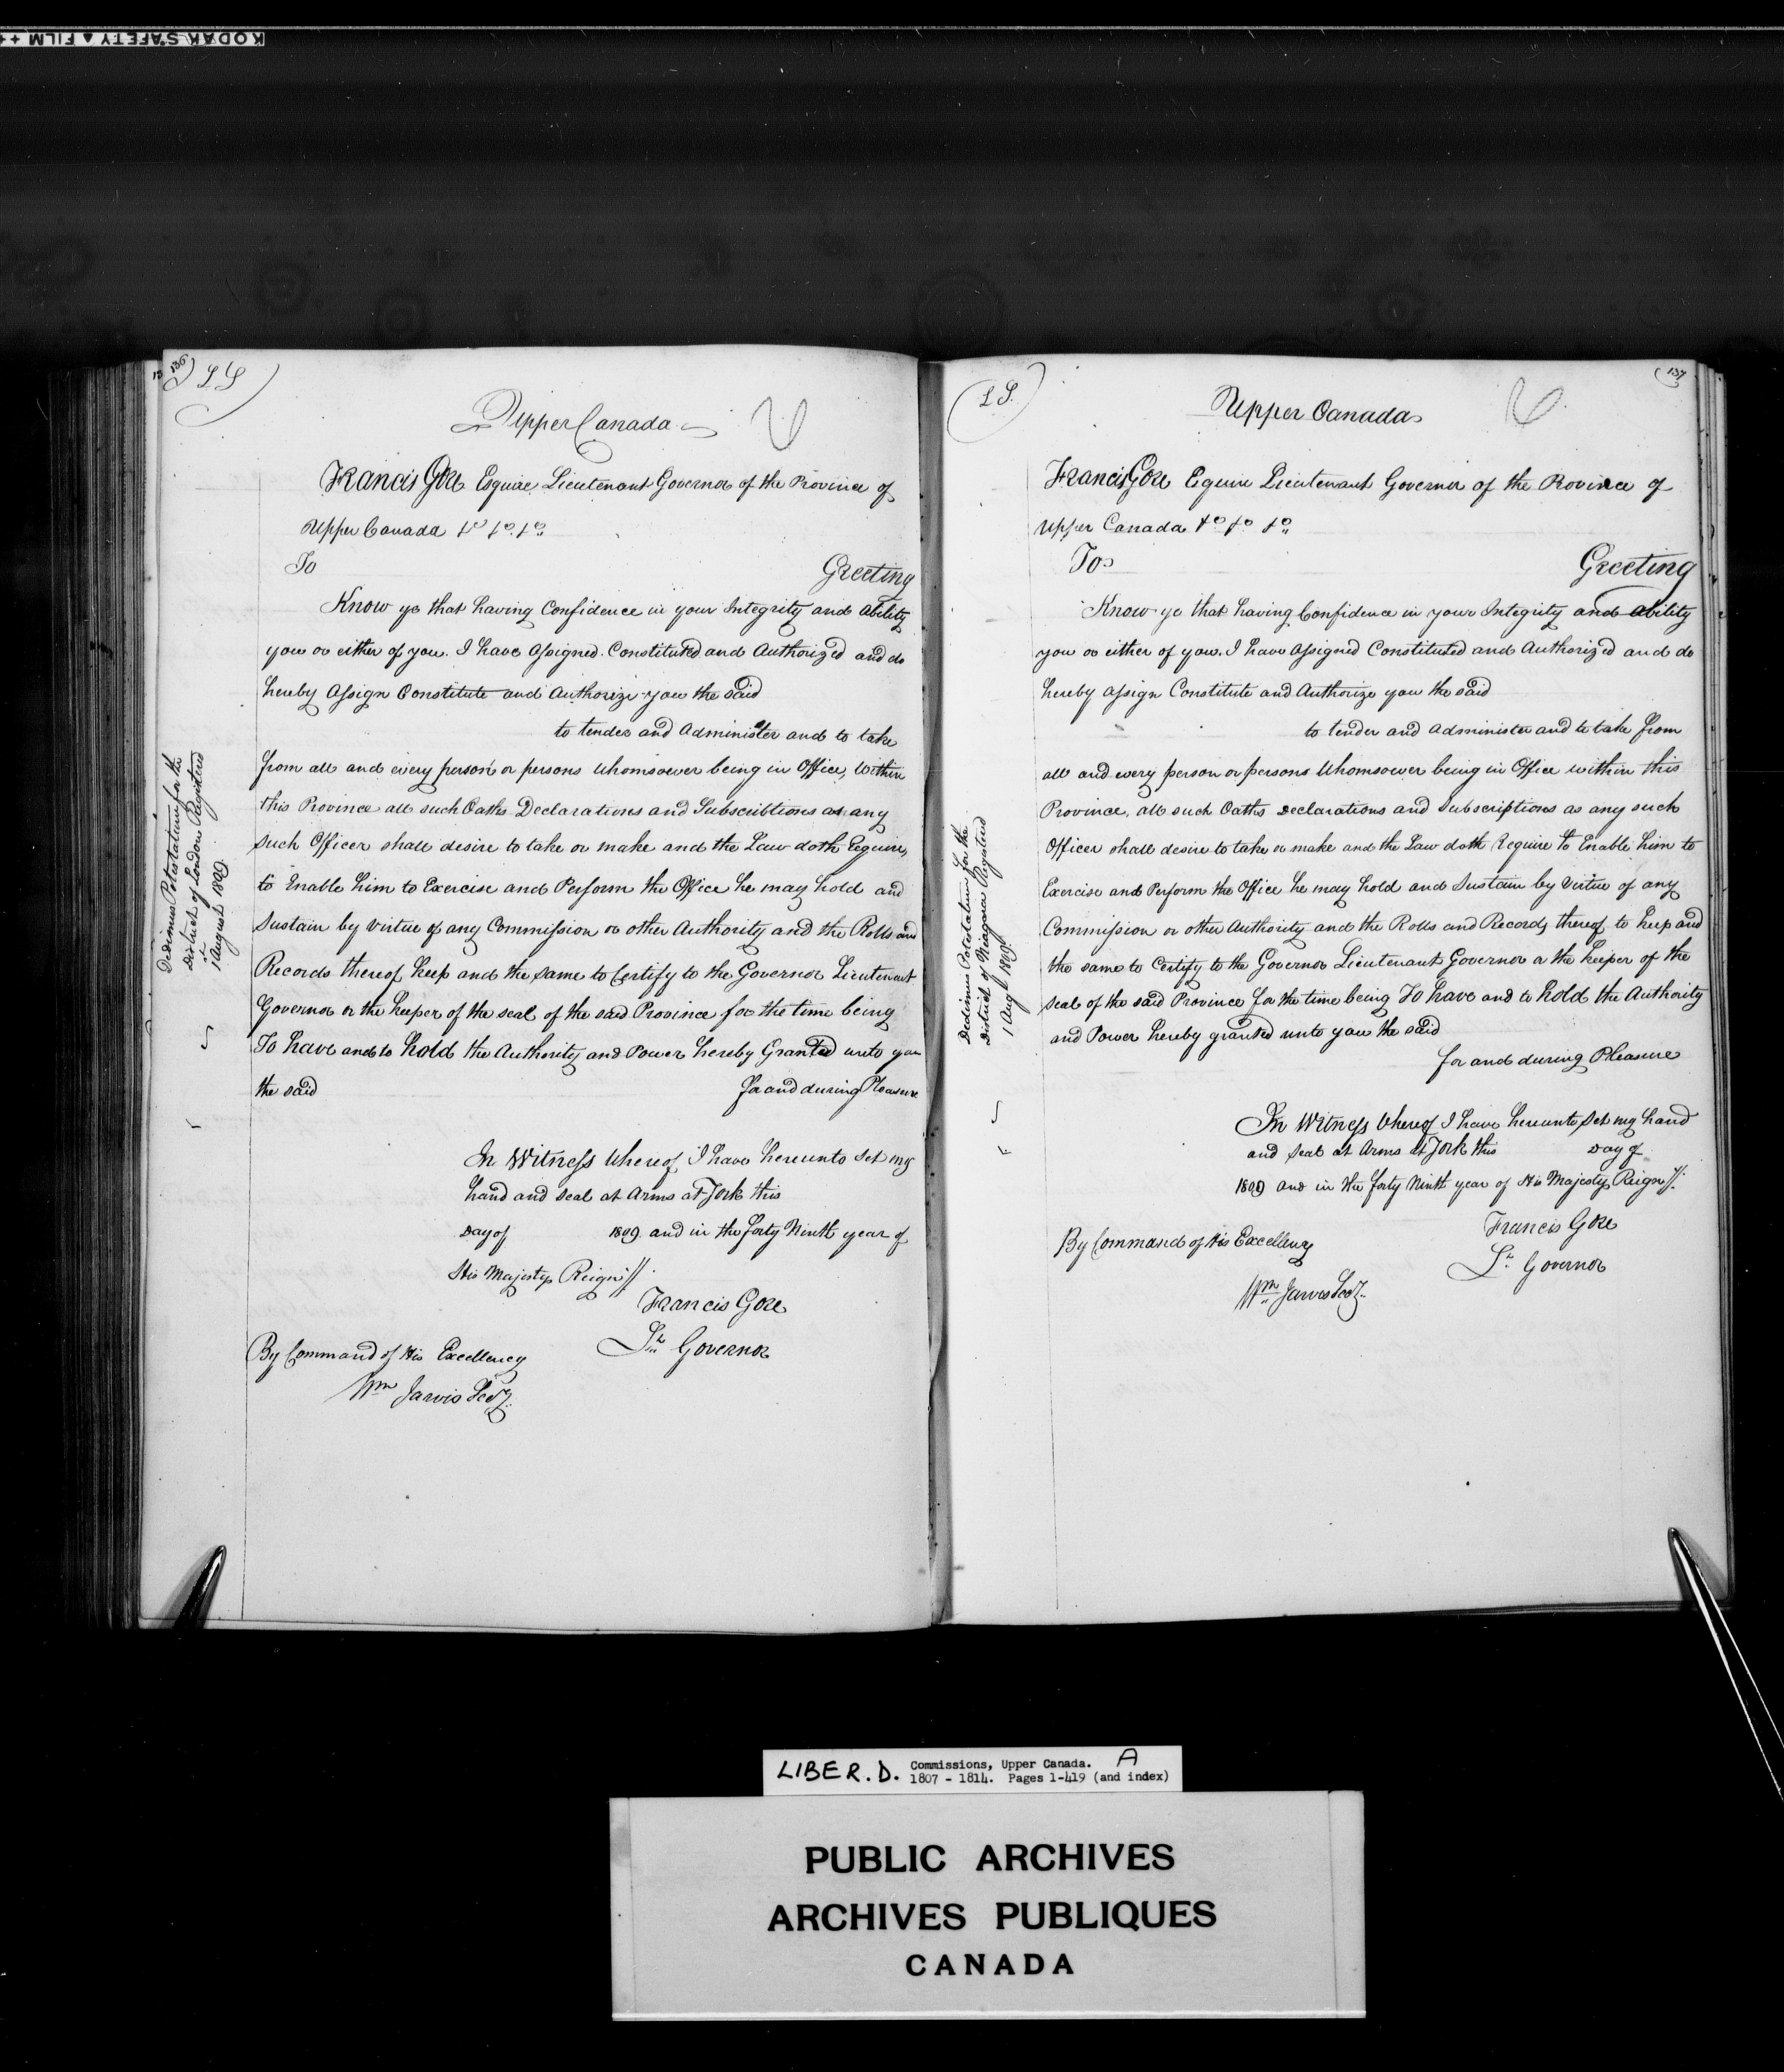 KODAK SAFETY ▲ FILM + +
136
L S
Upper Canada
Francis Gore Esquire Lieutenant Governor of the Province of
Upper Canada &c &c. &c.
To Greeting
Know ye that having Confidence in your Integrity and ability
you or either of you. I have Assigned. Constituted and Authorized and do
hereby Assign Constitute and Authorize you the said
to tender and administer and to take
from all and every person or persons whomsoever being in Office, within
this Province all such Oaths Declarations and Subscribtions as any
such Officer shall desire to take or make and the Law doth Require,
to Enable him to Exercise and Perform the Office he may hold and
Sustain by virtue of any Commission or other Authority and the Rolls and
Records thereof keep and the same to Certify to the Governor Lieutenant
Governor or the keeper of the seal of the said Province for the time being
To have and to hold the Authority and Power hereby Granted unto you
the said for and during Pleasure
In Witness whereof I have hereunto set my
hand and seal at arms at York this
Day of 1809 and in the forty Ninth year of
His Majestys Reign //.
Francis Gore
Lt. Governor
By Command of His Excellency
Wm Jarvis Secy.
Dedimus Potestatum for the
District of London Registered
1st August 1809
137
L S.
Upper Canada
Francis Gore Equire Lieutenant Governor of the Province of
Upper Canada &c &c &c.
To Greeting
Know ye that having Confidence in your Integrity and ability
you or either of you. I have Assigned Constituted and Authorized and do
hereby assign Constitute and Authorize you the said
to tender and administer and to take from
all and every person or persons whomsoever being in Office within this
Province, all such Oaths Declarations and Subscriptions as any such
Officer shall desire to take or make and the Law doth Require to Enable him to
Exercise and Perform the Office he may hold and Sustain by Virtue of any
Commission or other Authority and the Rolls and Records thereof to keep and
the same to Certify to the Governor Lieutenant Governor or the keeper of the
Seal of the said Province for the time being To have and to hold the Authority
and Power hereby granted unto you the said
for and during Pleasure
In Witness whereof I have hereunto set my hand
and seal at Arms at York this Day of
1809 and in the forty Ninth year of His Majestys Reign //.
Francis Gore
Lt. Governor
By Command of His Excellency
Wm Jarvis Secy.
Dedimus Potestatum for the
District of Niagara Registered
1 Aug 1809.
LIBER. D. Commissions, Upper Canada. A
1807 - 1814. Pages 1-419 (and index)
PUBLIC ARCHIVES
ARCHIVES PUBLIQUES
CANADA